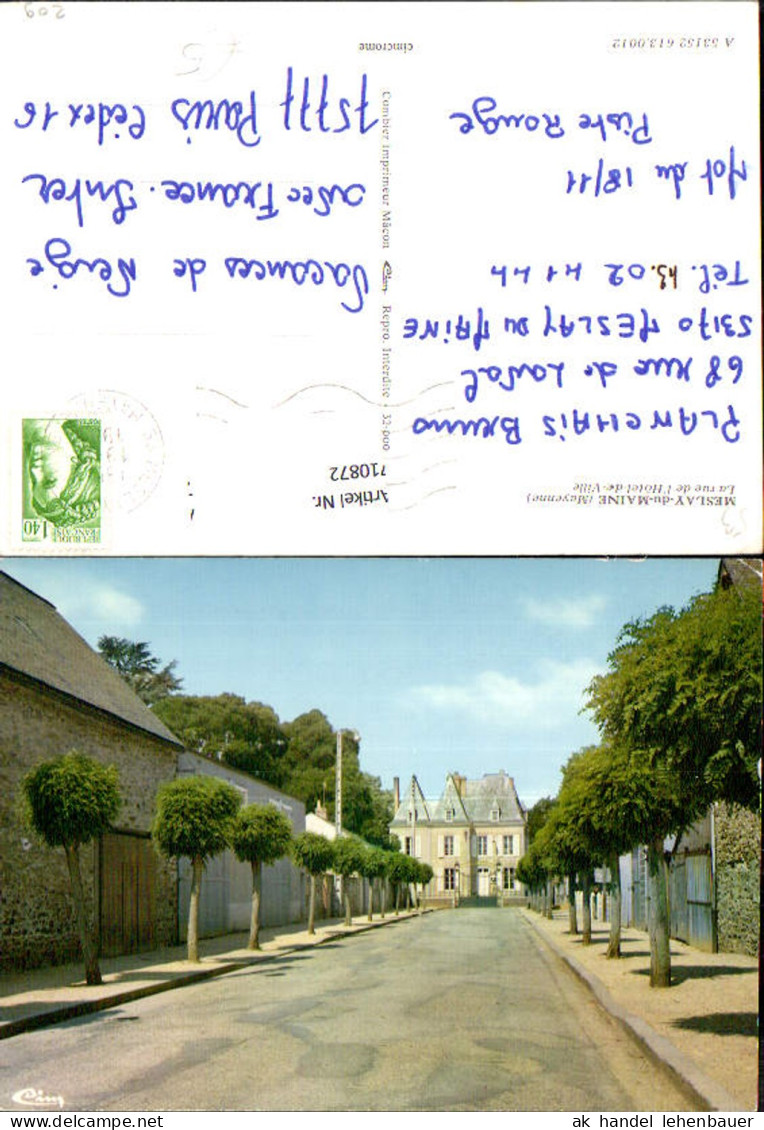 MESLAY-du-MAINE (Mayenne)
La rue de l'Hôtel-de-Ville
PLANCHAIS Bruno
68 rue de Laval
53170 MESLAY DU MAINE
Tél. 43.02 41 44
Mot du 18/11
Piste Rouge
A 53152 613.0012
Combier Imprimeur Mâcon Cim Repro. Interdite 52-000
cimcrome
Artikel Nr.
710872
1,40
REPUBLIQUE
FRANÇAISE
Vacances de Neige
avec France-Inter
75777 Paris Cédex 16
209
Cim
ak handel lehenbauer